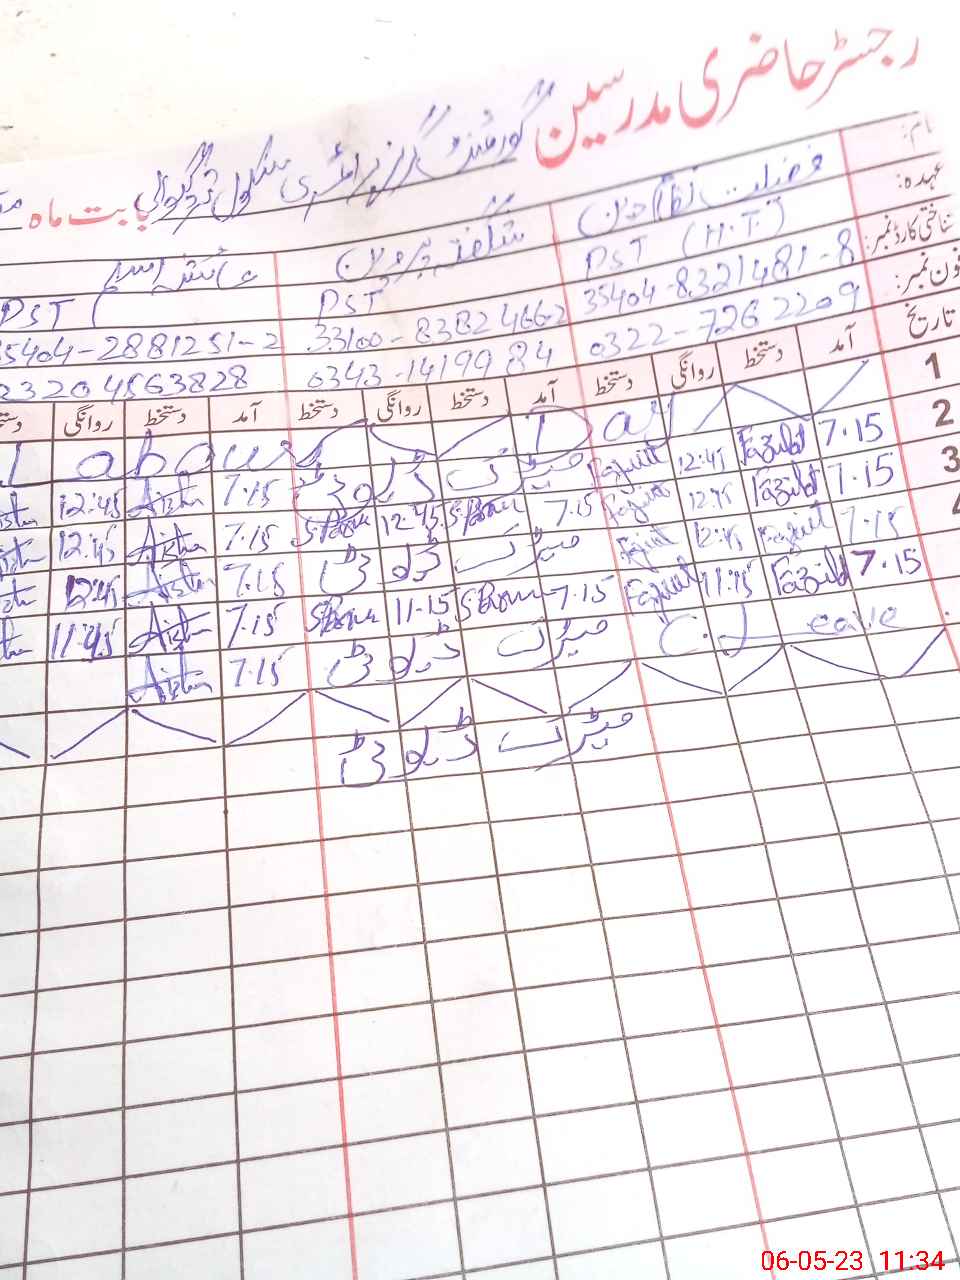 رجسٹر حاضری مدرسین گورنمنٹ گرلز پرائمری سکول بابت ماہ
نام: فضیلت نظام دین شگفتہ پروین عائشہ اسلم
عہدہ: PST (H.T) PST PST
شناختی کارڈ نمبر: 35404-8321481-8 33100-8382466-2 35404-2881251-2
فون نمبر: 0322-7262209 0343-1419984 03204563828
تاریخ آمد دستخط روانگی دستخط آمد دستخط روانگی دستخط آمد دستخط روانگی
1 Labour Day
2 7.15 Fazilat 12:45 Fazilat میٹرک ڈیوٹی 7.15 Aisha 12:45
3 7.15 Fazilat 12:45 Fazilat 7.15 S.Parveen 12:45 S.Parveen 7.15 Aisha 12:45
4 7.15 Fazilat 12:45 Fazilat میٹرک ڈیوٹی 7.15 Aisha 12:45
7.15 Fazilat 11:15 Fazilat 7.15 S.Parveen 11-15 S.Parveen 7.15 Aisha 11:45
C.Leave میٹرک ڈیوٹی 7.15 Aisha
میٹرک ڈیوٹی
06-05-23 11:34